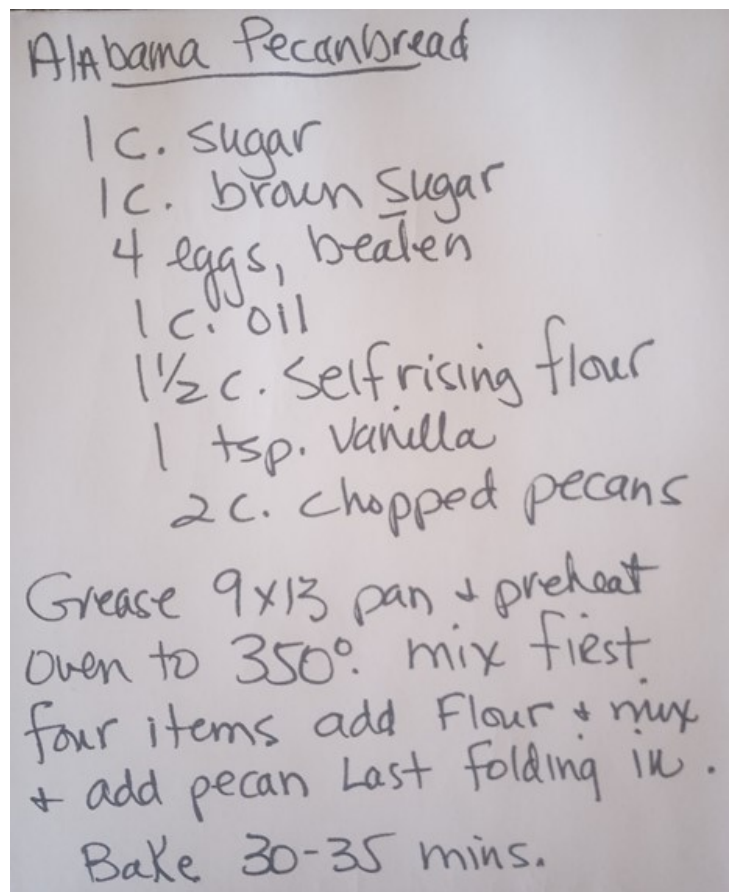 Alabama Pecanbread
1 c. sugar
1 c. brown sugar
4 eggs, beaten
1 c. oil
1½ c. Self rising flour
1 tsp. Vanilla
2 c. chopped pecans
Grease 9x13 pan + preheat
oven to 350°. mix fiest
four items add Flour + mix
+ add pecan Last folding in.
Bake 30-35 mins.